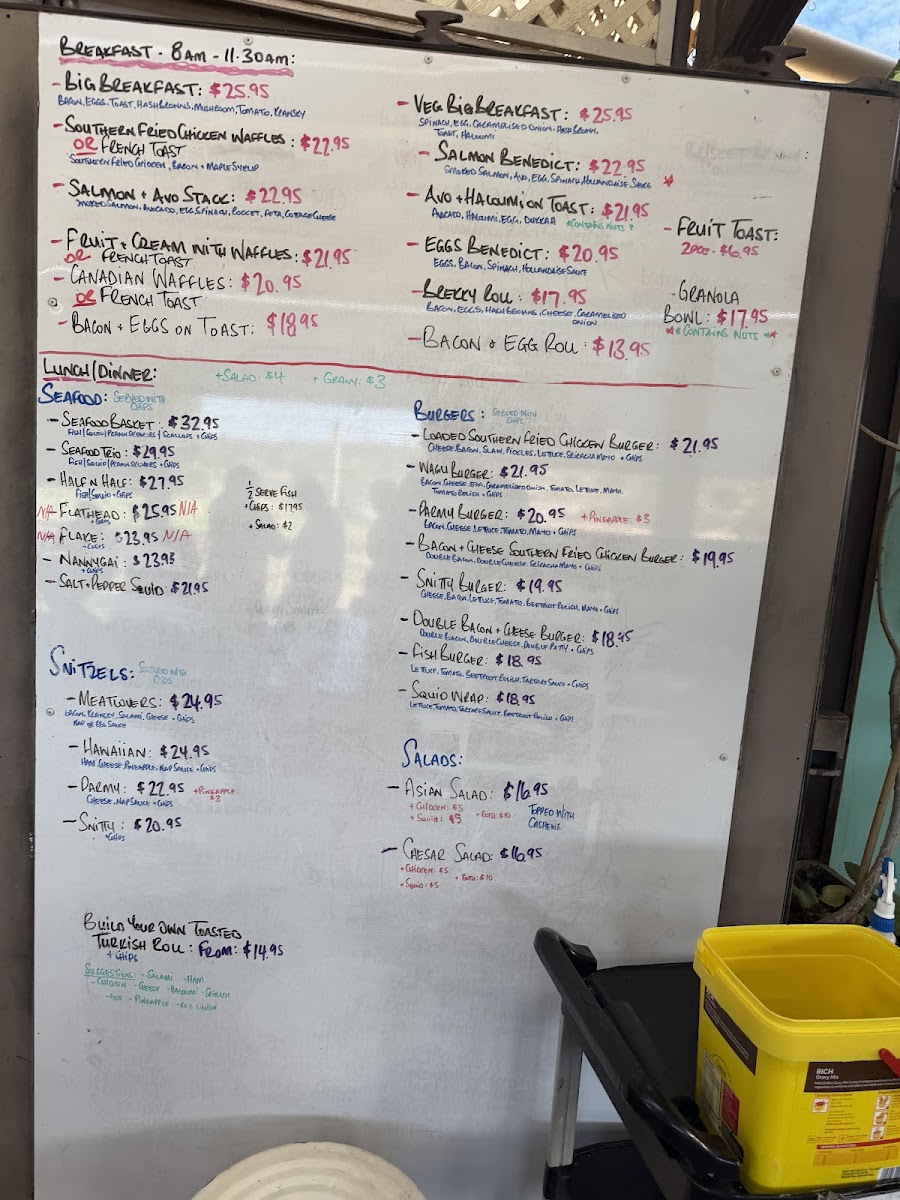 BREAKFAST - 8AM - 11.30AM:
- BIG BREAKFAST: $25.95
BACON, EGGS, TOAST, HASHBROWNS, MUSHROOM, TOMATO, KRANSKY
- SOUTHERN FRIED CHICKEN WAFFLES: $22.95
OR FRENCH TOAST
SOUTHERN FRIED CHICKEN, BACON + MAPLE SYRUP
- SALMON + AVO STACK: $22.95
SMOKED SALMON, AVOCADO, EGG, SPINACH, ROCKET, FETA, COTAGE CHEESE
- FRUIT + CREAM WITH WAFFLES: $21.95
OR FRENCH TOAST
- CANADIAN WAFFLES: $20.95
OR FRENCH TOAST
- BACON + EGGS ON TOAST: $18.95
- VEG BIG BREAKFAST: $25.95
SPINACH, EGG, CARAMELISED ONION, HASH BROWN,
TOAST, HALOUMI
- SALMON BENEDICT: $22.95
SMOKED SALMON, AVO, EGG, SPINACH, HOLLANDAISE SAUCE
- AVO + HALOUMI ON TOAST: $21.95
AVOCADO, HALOUMI, EGG, DUKKAH *CONTAINS NUTS*
- EGGS BENEDICT: $20.95
EGGS, BACON, SPINACH, HOLLANDAISE SAUCE
- BREKKY ROLL: $17.95
BACON, EGGS, HASHBROWNS, CHEESE, CARAMELISED
ONION
- BACON & EGG ROLL: $13.95
- FRUIT TOAST:
2PCE - $6.95
- GRANOLA
BOWL: $17.95
** CONTAINS NUTS **
LUNCH/DINNER:
+ SALAD: $4 + GRAVY: $3
SEAFOOD: SERVED WITH
CHIPS
- SEAFOOD BASKET: $32.95
FISH/SQUID/PRAWN SKEWERS/SCALLOPS + CHIPS
- SEAFOOD TRIO: $29.95
FISH/SQUID/PRAWN SKEWERS + CHIPS
- HALF N HALF: $27.95
FISH/SQUID + CHIPS
N/A - FLATHEAD: $25.95 N/A
+ CHIPS
N/A - FLAKE: $23.95 N/A
+ CHIPS
- NANNYGAI: $23.95
+ CHIPS
- SALT + PEPPER SQUID: $21.95
1/2 SERVE FISH
+ CHIPS: $17.95
+ SALAD: $2
SNITZELS: SERVED WITH
CHIPS
- MEATLOVERS: $24.95
BACON, KRANSKY, SALAMI, CHEESE + CHIPS
NAP OR BBQ SAUCE
- HAWAIIAN: $24.95
HAM, CHEESE, PINEAPPLE, NAP SAUCE + CHIPS
- PARMY: $22.95 + PINEAPPLE:
$3
CHEESE, NAP SAUCE + CHIPS
- SNITTY: $20.95
+ CHIPS
BUILD YOUR OWN TOASTED
TURKISH ROLL: FROM: $14.95
+ CHIPS
SUGGESTIONS: - SALAMI - HAM
- CHICKEN - CHEESE - HALOUMI - SPINACH
- PINEAPPLE - RED ONION
BURGERS: SERVED WITH
CHIPS
- LOADED SOUTHERN FRIED CHICKEN BURGER: $21.95
CHEESE, BACON, SLAW, PICKLES, LETTUCE, SRIRACHA MAYO + CHIPS
- WAGU BURGER: $21.95
BACON, CHEESE, EGG, CARAMELISED ONION, TOMATO, LETTUCE, MAYO,
TOMATO RELISH + CHIPS
- PARMY BURGER: $20.95 + PINEAPPLE: $3
BACON, CHEESE, LETTUCE, TOMATO, MAYO + CHIPS
- BACON + CHEESE SOUTHERN FRIED CHICKEN BURGER: $19.95
DOUBLE BACON, DOUBLE CHEESE, SRIRACHA MAYO + CHIPS
- SNITTY BURGER: $19.95
CHEESE, BACON, LETTUCE, TOMATO, BEETROOT RELISH, MAYO + CHIPS
- DOUBLE BACON + CHEESE BURGER: $18.95
DOUBLE BACON, DOUBLE CHEESE, DOUBLE PATTY + CHIPS
- FISH BURGER: $18.95
LETTUCE, TOMATO, BEETROOT RELISH, TARTARE SAUCE + CHIPS
- SQUID WRAP: $18.95
LETTUCE, TOMATO, TARTARE SAUCE, BEETROOT RELISH + CHIPS
SALADS:
- ASIAN SALAD: $16.95
+ CHICKEN: $5
+ SQUID: $5 + BOTH: $10
TOPPED WITH
CASHEWS
- CAESAR SALAD: $16.95
+ CHICKEN: $5
+ SQUID: $5 + BOTH: $10
RICH
Gravy Mix